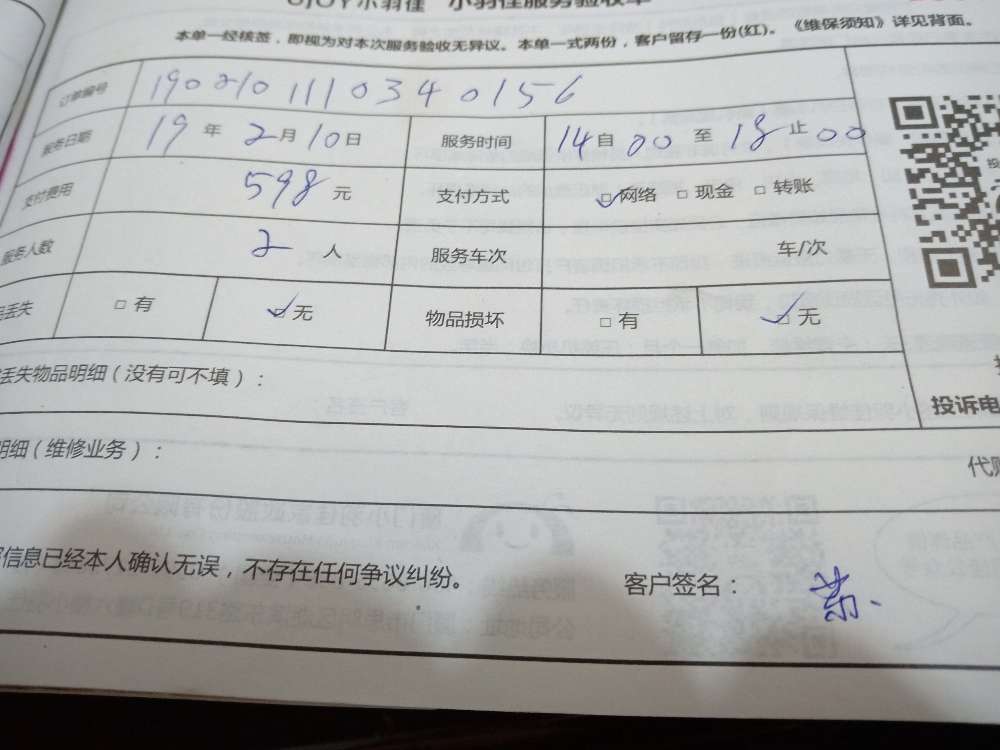 UJOY小羽佳 小羽佳服务验收单
本单一经核签，即视为对本次服务验收无异议。本单一式两份，客户留存一份(红)。《维保须知》详见背面。
订单编号 190210111034 0156
服务日期 19 年 2 月 10 日 服务时间 14 自 00 至 18 止 00
支付费用 598 元 支付方式 □网络 □现金 □转账
服务人数 2 人 服务车次 车/次
丢失 □有 □无 物品损坏 □有 □无
丢失物品明细（没有可不填）：
投诉电
明细（维修业务）：
代购
信息已经本人确认无误，不存在任何争议纠纷。 客户签名：